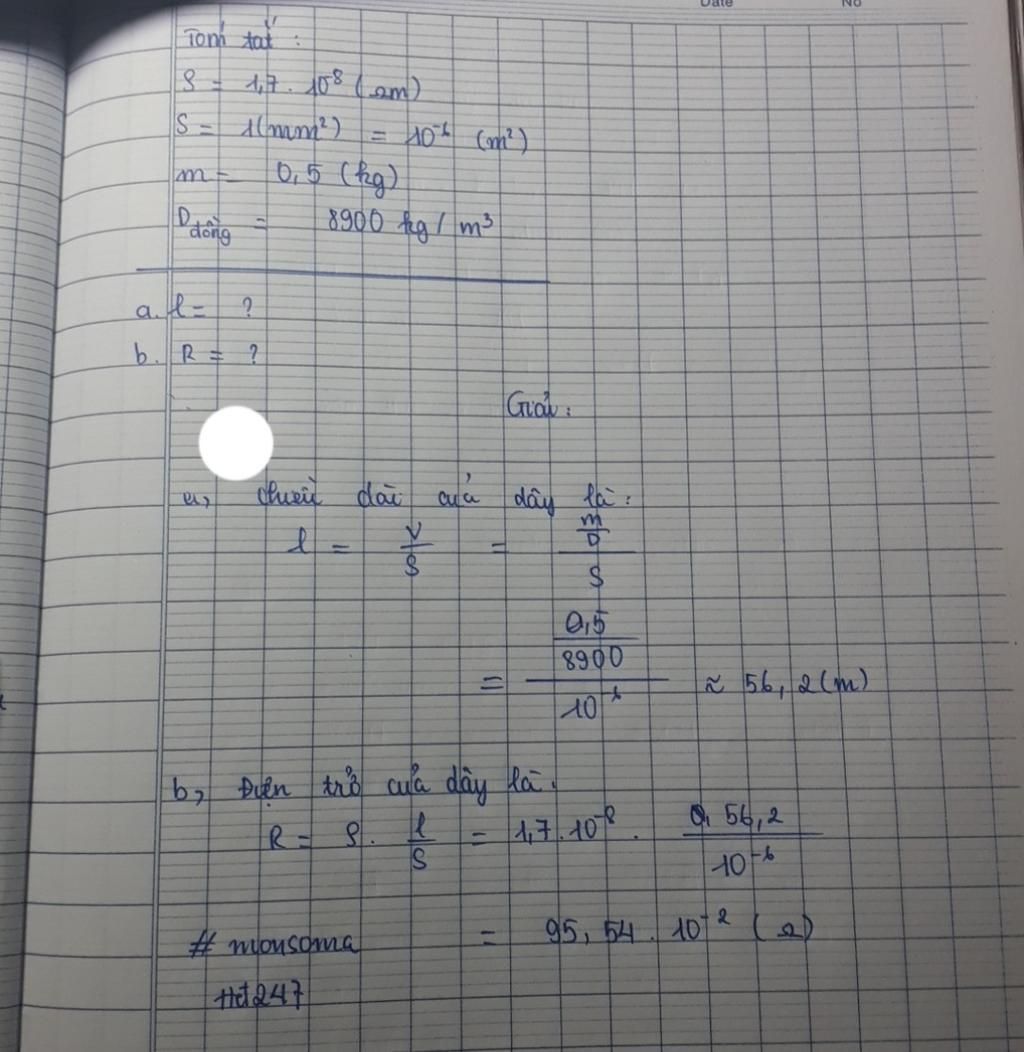 Date No
Tóm tắt :
ρ = 1,7 . 10⁸ (Ωm)
S = 1(mm²) = 10⁻⁶ (m²)
m = 0,5 (kg)
D đồng = 8900 kg / m³
a. l = ?
b. R = ?
Giải :
a, chiều dài của dây là :
l = V/S = (m/D)/S
= (0,5/8900)/10⁻⁶ ≈ 56,2 (m)
b, Điện trở của dây là.
R = ρ . l/S = 1,7 . 10⁻⁸ . 56,2/10⁻⁶
= 95,54 . 10⁻² (Ω)
# monsoma
Hđ247